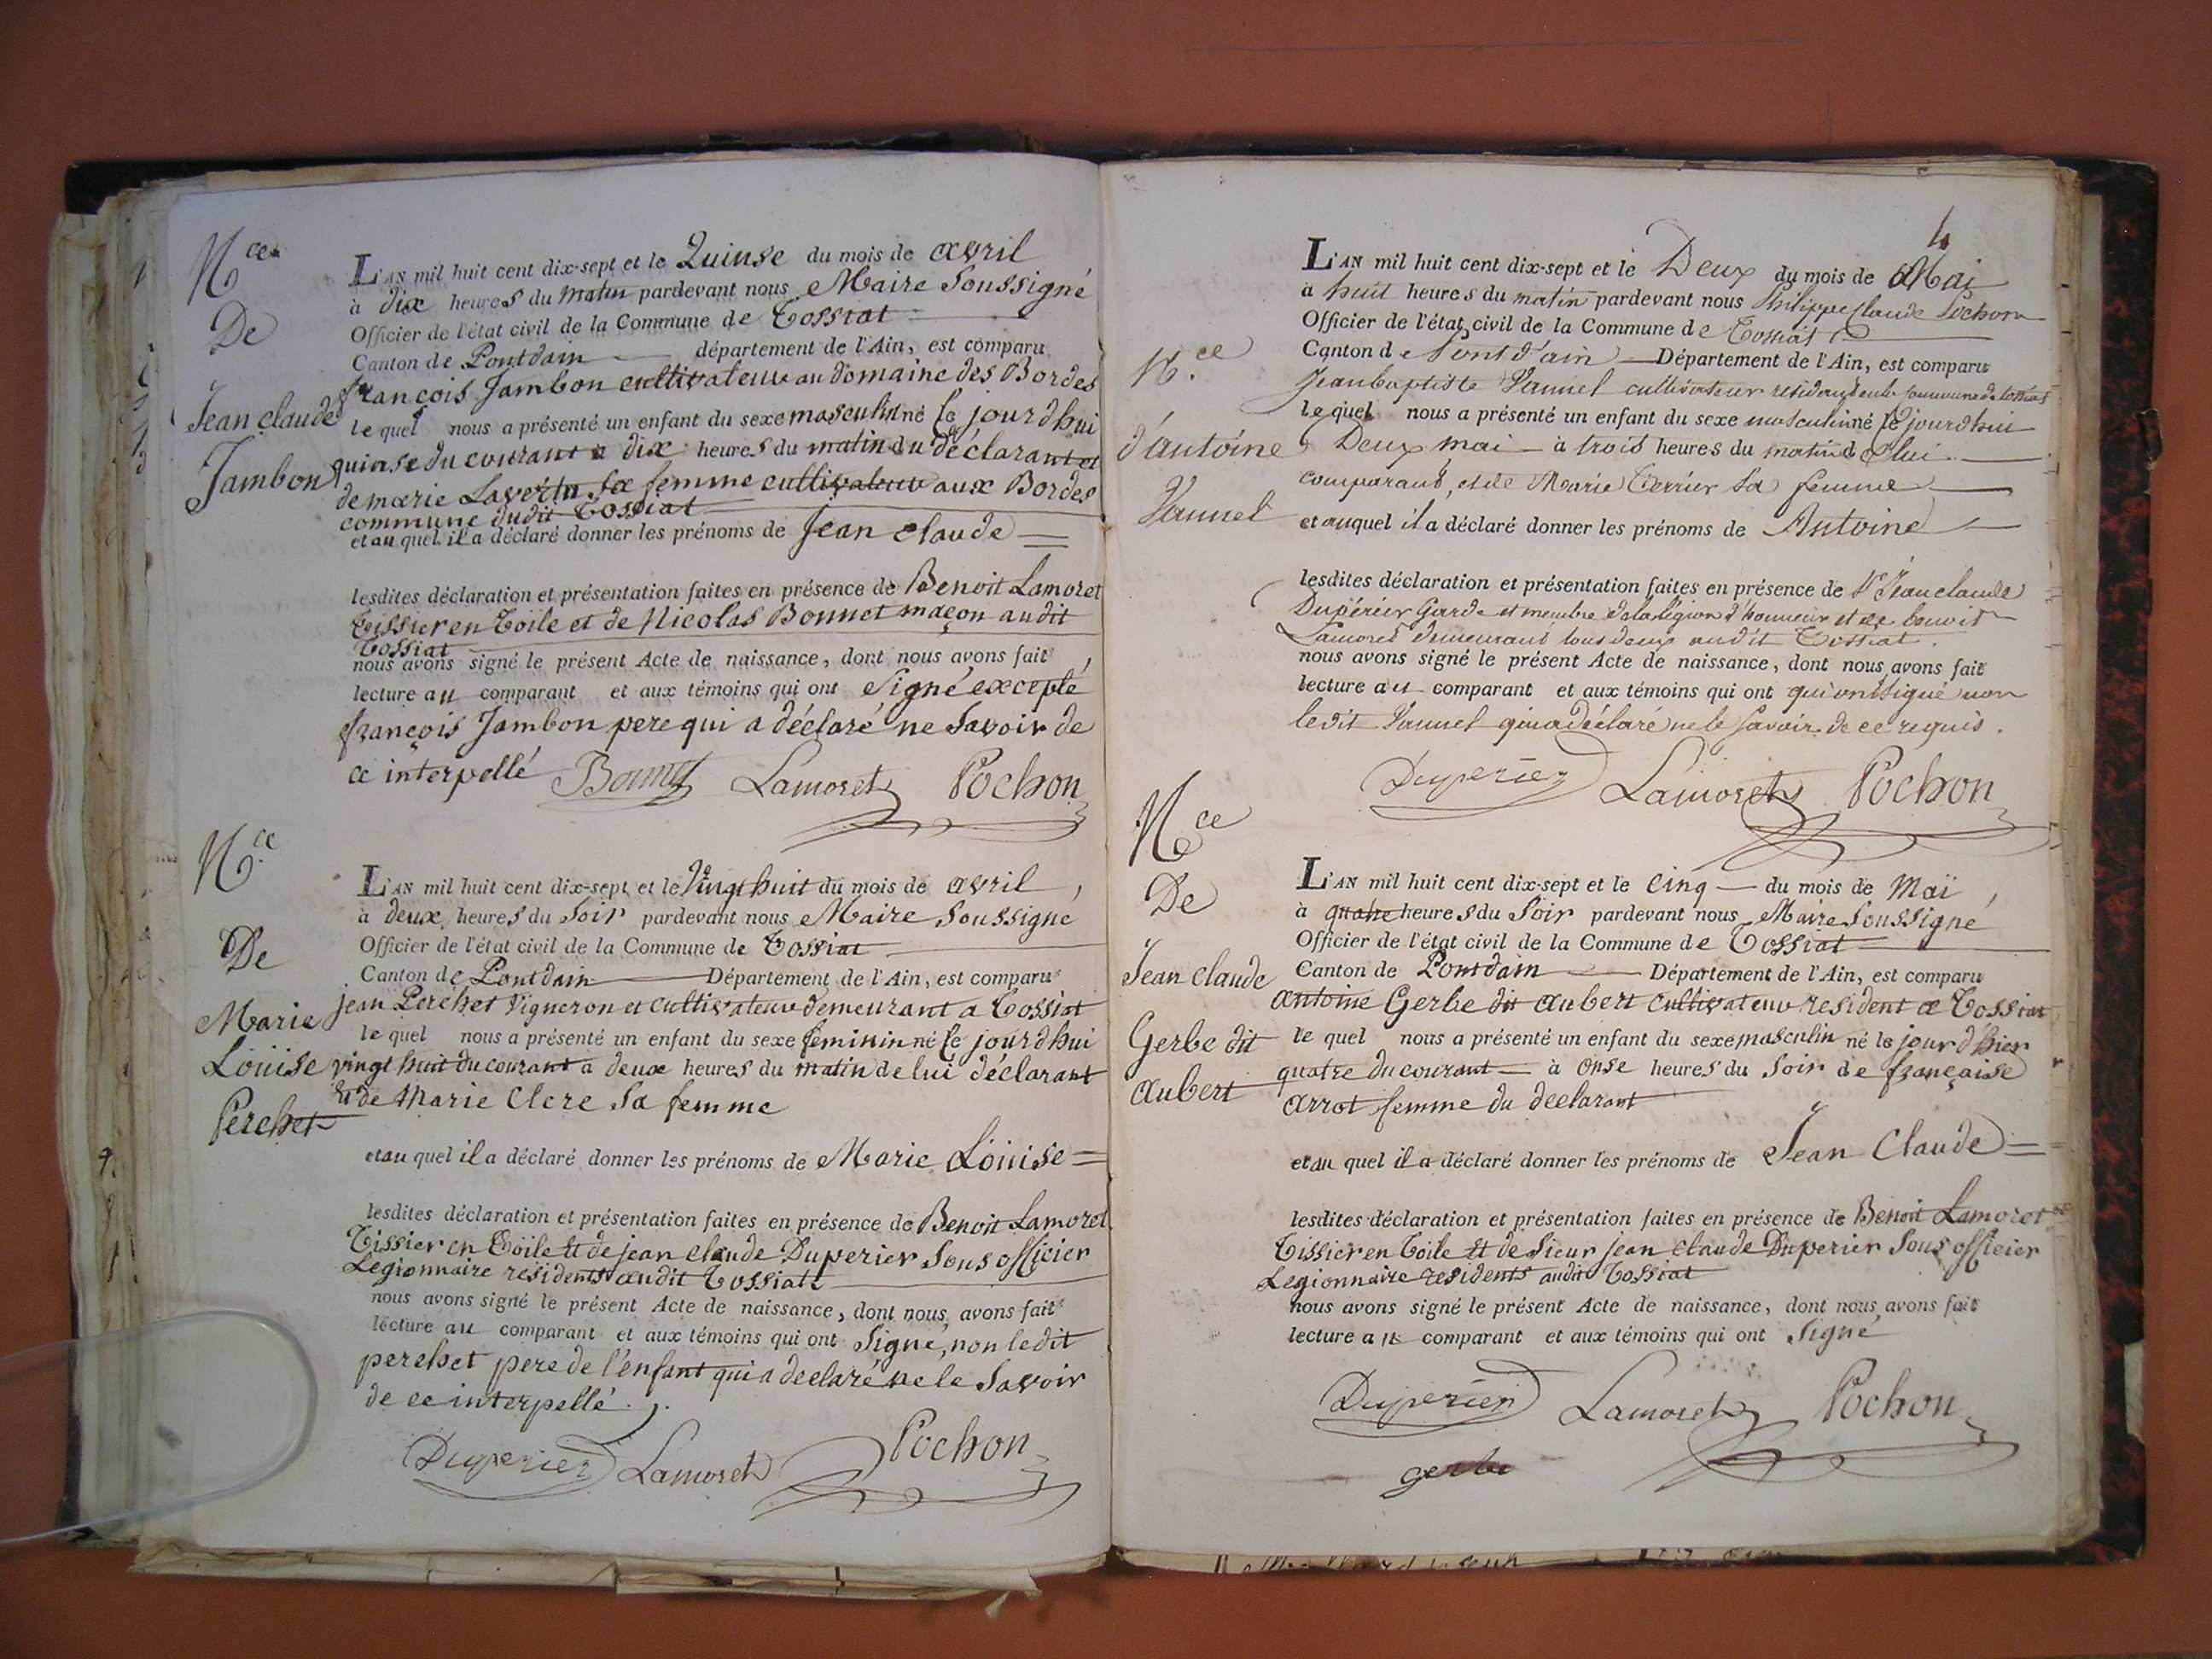 Nce
De
Jean claude
Jambon
L'AN mil huit cent dix-sept et le Quinse du mois de avril
à dix heures du matin pardevant nous Maire Soussigné
Officier de l'état civil de la Commune de Tossiat
Canton de Pontdain département de l'Ain, est comparu
françois Jambon cultivateur au domaine des Bordes
lequel nous a présenté un enfant du sexe masculin né le jourdhui
quinse du courant a dix heures du matin du déclarant et
de marie Sa femme cultivateur aux Bordes
commune dudit Tossiat
et au quel il a déclaré donner les prénoms de Jean claude
lesdites déclaration et présentation faites en présence de Benoit Lamoret
Tissier en Toile et de Nicolas Bonnet maçon audit
Tossiat
nous avons signé le présent Acte de naissance, dont nous avons fait
lecture au comparant et aux témoins qui ont Signé excepté
françois Jambon pere qui a déclaré ne Savoir de
ce interpellé Bonnet Lamoret Pochon
Nce
De
Marie
Loüise
Perchet
L'AN mil huit cent dix-sept et le Vingt huit du mois de avril,
à deux heures du Soir pardevant nous Maire Soussigné
Officier de l'état civil de la Commune de Tossiat
Canton de Pontdain Département de l'Ain, est comparu
jean Perchet Vigneron et cultivateur demeurant a Tossiat
le quel nous a présenté un enfant du sexe feminin né le jourdhui
vingt huit du courant a deux heures du matin de lui déclarant
et de Marie Clere Sa femme
et au quel il a déclaré donner les prénoms de Marie Loüise
lesdites déclaration et présentation faites en présence de Benoit Lamoret
Tissier en Toile et de jean claude Duperier Sous officier
Legionnaire residents audit Tossiatt
nous avons signé le présent Acte de naissance, dont nous avons fait
lecture au comparant et aux témoins qui ont Signé, non ledit
perchet pere de l'enfant qui a declaré ne le Savoir
de ce interpellé.
Duperier Lamoret Pochon
4
Nce
d'antoine
Vannel
L'AN mil huit cent dix-sept et le Deux du mois de Mai
à huit heures du matin pardevant nous Philippe Claude Pochon
Officier de l'état civil de la Commune de Tossiat
Canton de Pont d'ain Département de l'Ain, est comparu
Jean baptiste Vannel cultivateur residant en la commune de tossiat
lequel nous a présenté un enfant du sexe masculin né le jourdhui
Deux mai à trois heures du matin de lui
comparant, et de Marie Terrier Sa femme
et auquel il a déclaré donner les prénoms de Antoine
lesdites déclaration et présentation faites en présence de Sr Jean claude
Dupérier Garde et membre de la légion d'honneur et de benoit
Lamoret demeurant tous deux audit Tossiat.
nous avons signé le présent Acte de naissance, dont nous avons fait
lecture au comparant et aux témoins qui ont qui ont signé non
ledit Vannel qui a déclaré ne le savoir de ce requis.
Duperier Lamoret Pochon
Nce
De
Jean Claude
Gerbe dit
aubert
L'AN mil huit cent dix-sept et le Cinq du mois de Maï,
à quatre heures du Soir pardevant nous Maire Soussigné
Officier de l'état civil de la Commune de Tossiat
Canton de Pontdain Département de l'Ain, est comparu
antoine Gerbe dit aubert cultivateur resident a Tossiat
le quel nous a présenté un enfant du sexe masculin né le jour d'hier
quatre du courant à onse heures du Soir de française
arrot femme du declarant
et au quel il a déclaré donner les prénoms de Jean Claude
lesdites déclaration et présentation faites en présence de Benoit Lamoret
Tissier en Toile et de Sieur jean claude Duperier Sous officier
Legionnaire residents audit Tossiat
nous avons signé le présent Acte de naissance, dont nous avons fait
lecture au comparant et aux témoins qui ont Signé
Duperier Lamoret Pochon
gerbe